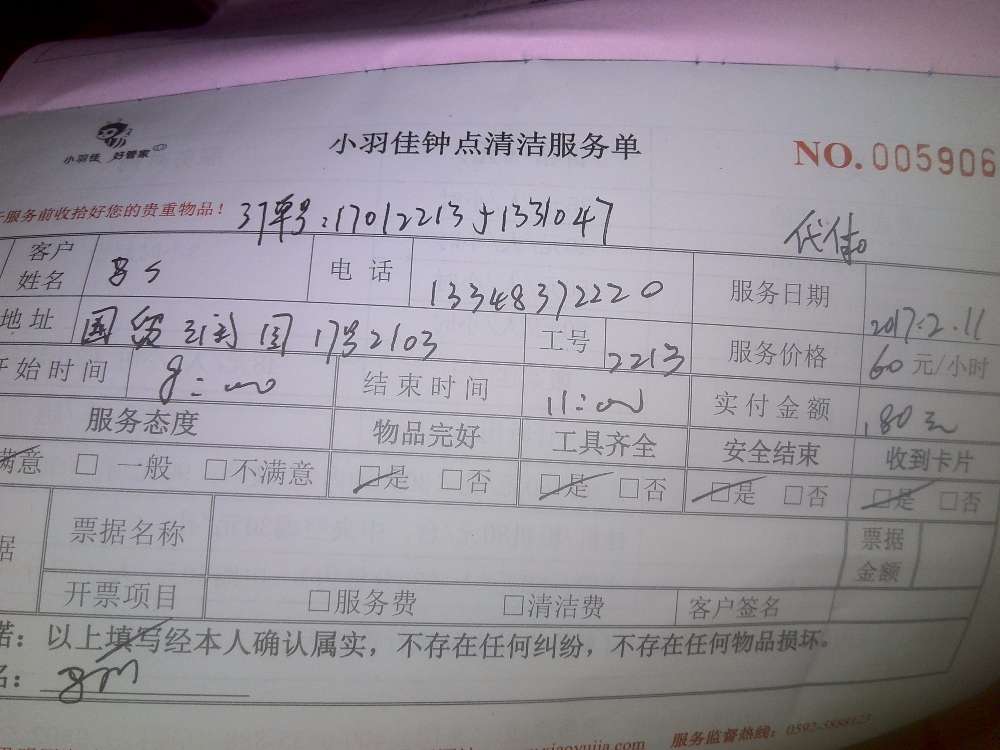 小羽佳 好管家
小羽佳钟点清洁服务单
NO.005906
服务前收拾好您的贵重物品!
订单号:17012213
1331047
代付
客户姓名
电话 13348372220 服务日期 2017.2.11
地址 国贸 园 17号2103 工号 2213 服务价格 60元/小时
开始时间 8:00 结束时间 11:00 实付金额 180元
服务态度 物品完好 工具齐全 安全结束 收到卡片
满意 □一般 □不满意 □是 □否 □是 □否 □是 □否 □是 □否
据 票据名称 票据金额
开票项目 □服务费 □清洁费 客户签名
诺:以上填写经本人确认属实,不存在任何纠纷,不存在任何物品损坏。
名:
xiaoyujia.com 服务监督热线: